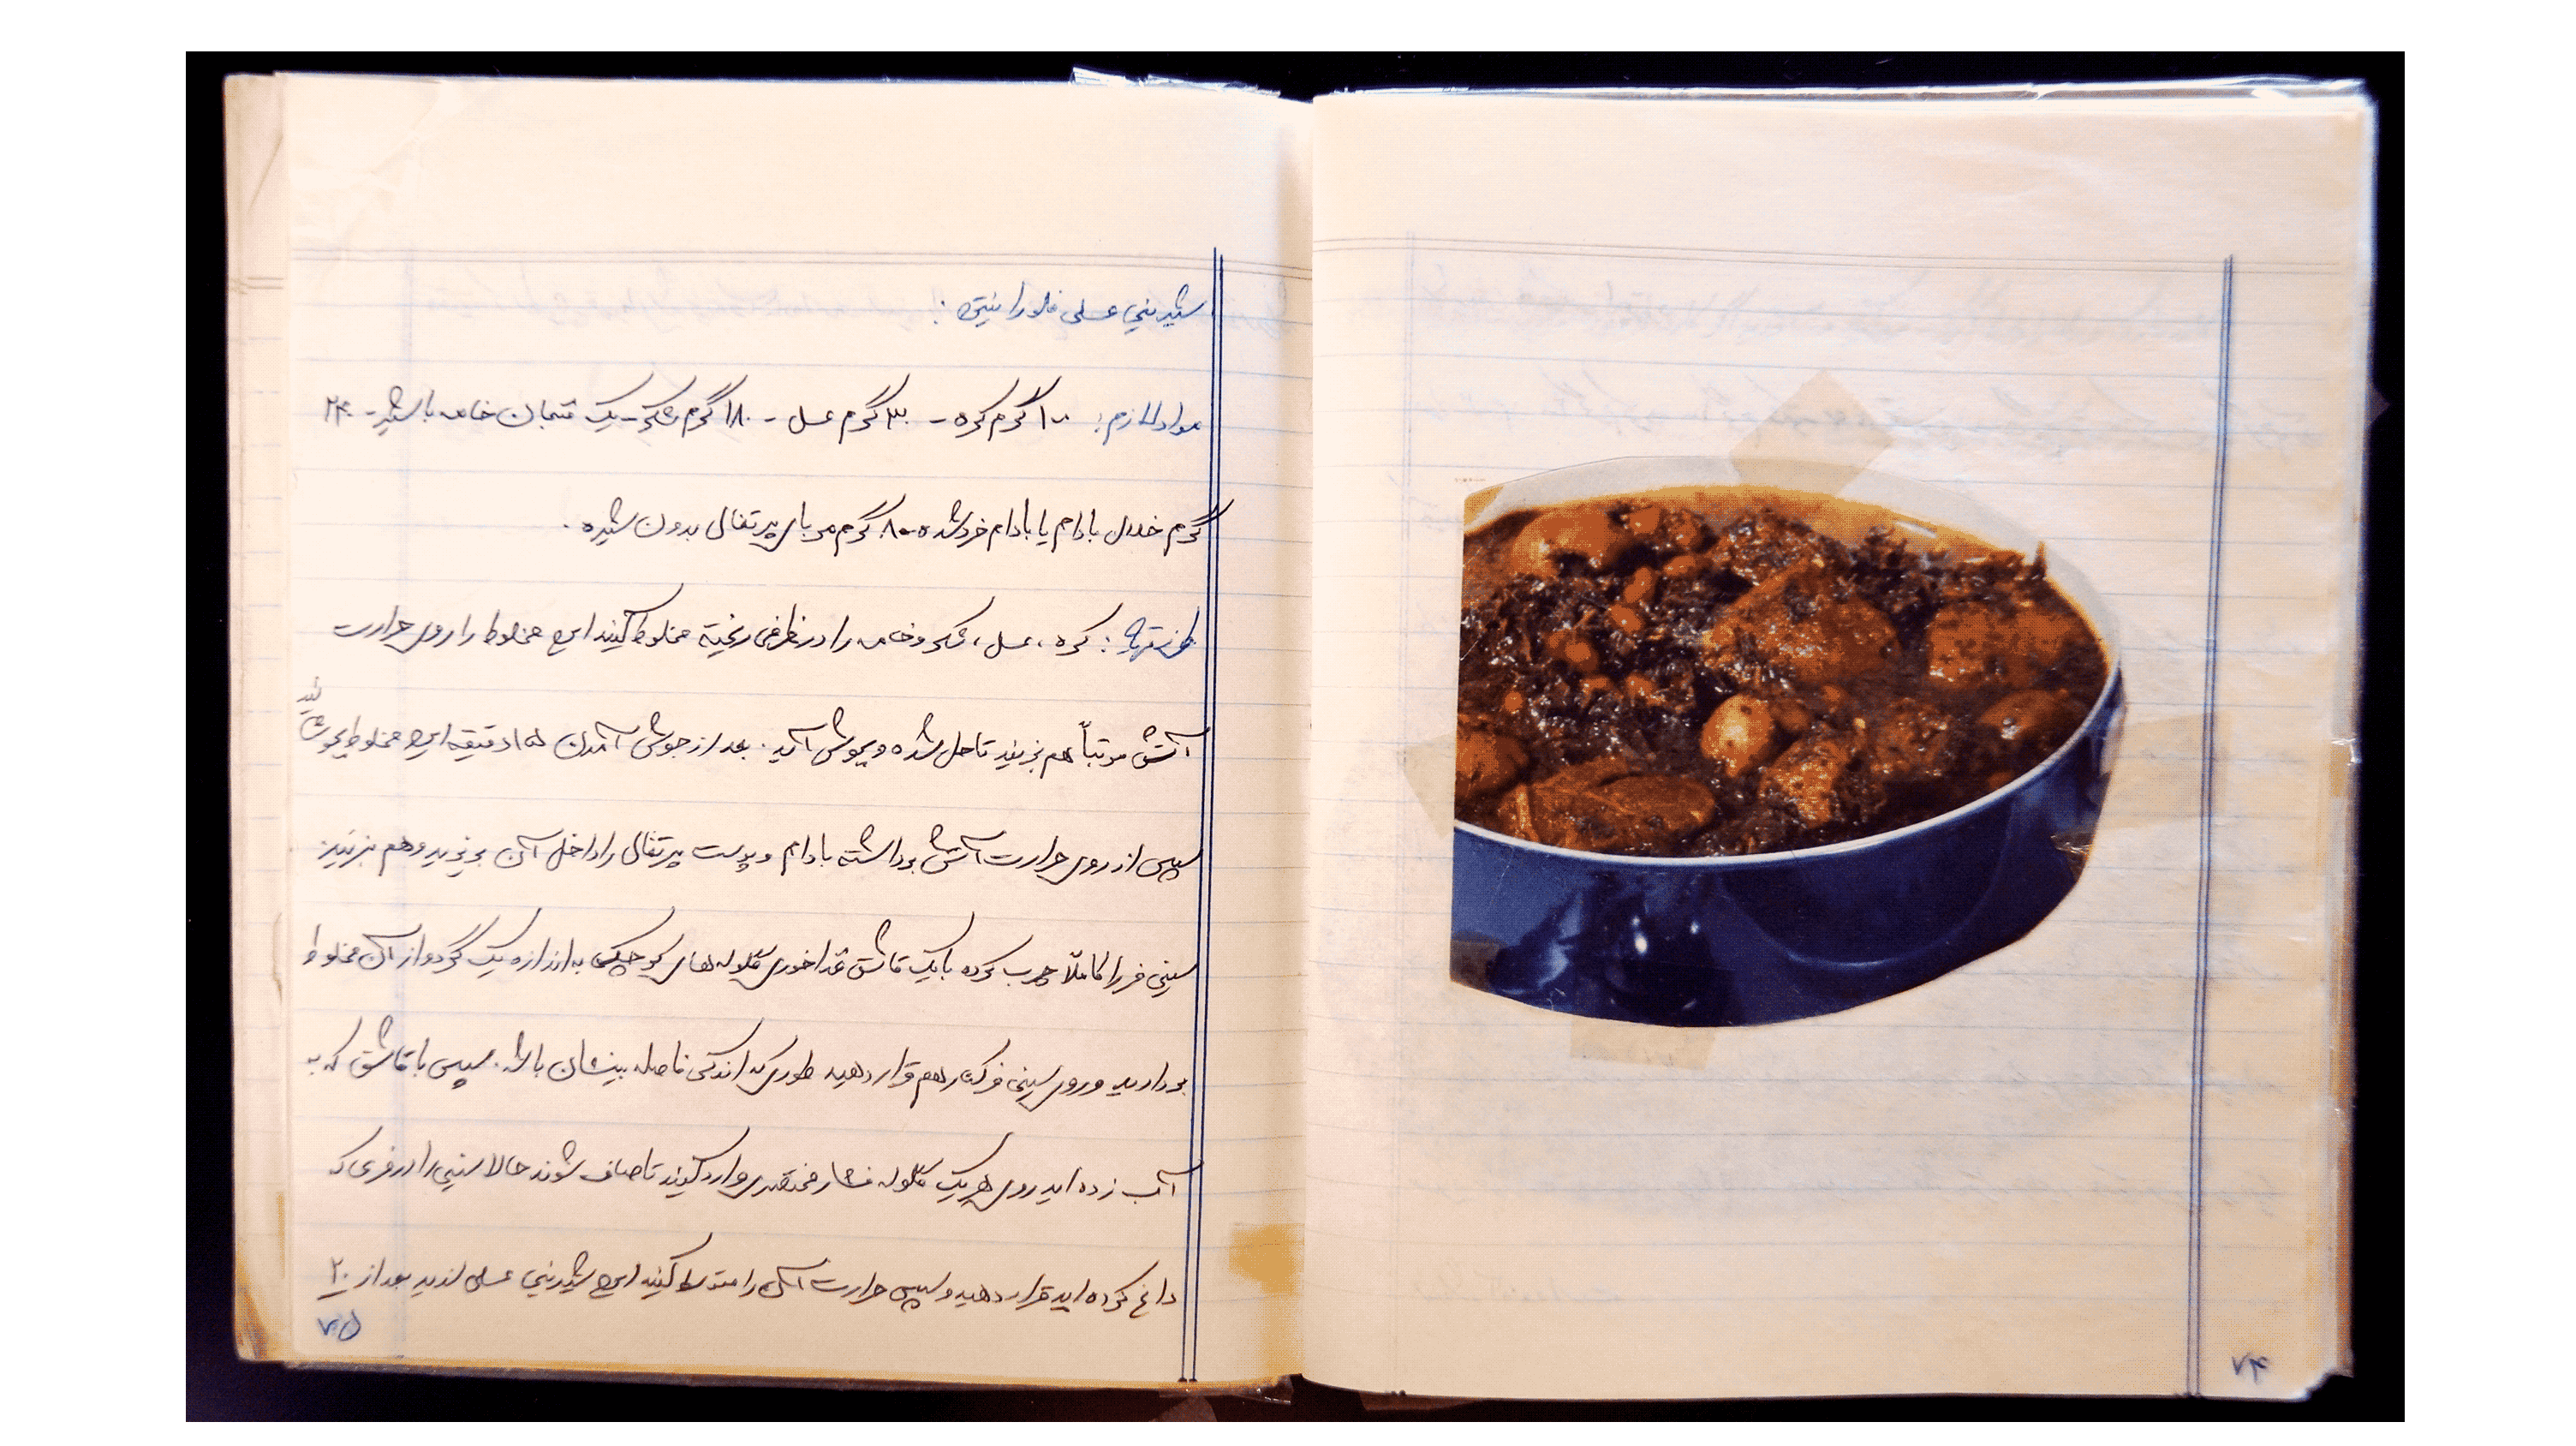 شیرینی عسلی فلورانتین :
مواد لازم : ۱۰۰ گرم کره - ۳۰ گرم عسل - ۱۸۰ گرم شکر - یک فنجان خامه یا شیر - ۲۴۰
گرم خلال بادام یا بادام خرد شده - ۸۰ گرم مربای پرتقال بدون شیره .
طرز تهیه : کره ، عسل ، شکر و خامه را در ظرفی ریخته مخلوط کنید این مخلوط را روی حرارت
آتش مرتباً هم بزنید تا حل شده و بجوش آید . بعد از جوش آمدن ۱۵ دقیقه این مخلوط بجوشانید
سپس از روی حرارت آتش برداشته بادام و پوست پرتقال را داخل آن بریزید و هم بزنید
سینی فر را کاملاً چرب کرده با یک قاشق غذاخوری گلوله های کوچکی به اندازه یک گردو از آن مخلوط
بردارید و روی سینی فر کنار هم قرار دهید طوری که اندکی فاصله بینشان باشد . سپس با قاشق که به
آب زده اید روی هر یک گلوله فشار مختصری وارد کنید تا صاف شوند حالا سینی را در فری که
داغ کرده اید قرار دهید و سپس حرارت آن را متوسط کنید این شیرینی عسلی لذیذ بعد از ۲۰
۷۵
۷۴